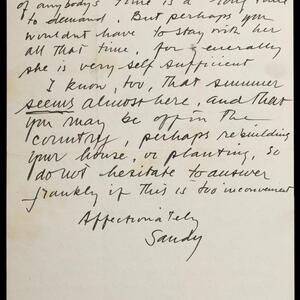 of anybody's time is a long time
to demand. But perhaps you
wouldn't have to stay with her
all that time, for generally
she is very self sufficient
I know, too, that summer
seems almost here, and that
you may be off in the
country, perhaps rebuilding
your house, or planting, so
do not hesitate to answer
frankly if this is too inconvenient
Affectionately
Sandy